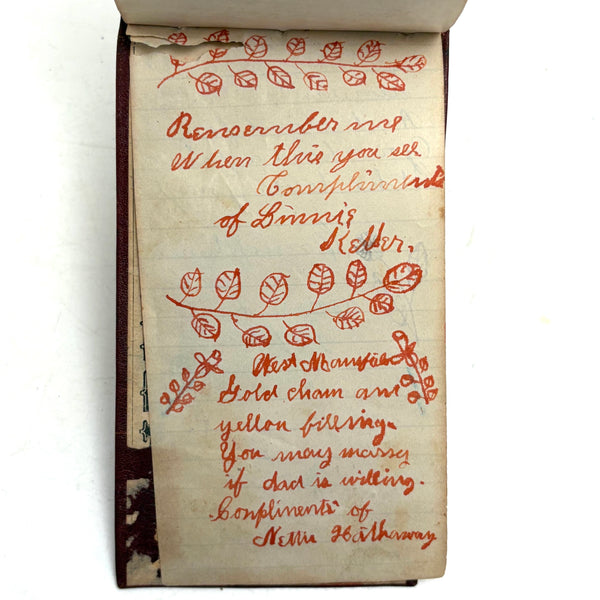 Remember me
When this you see
Compliments
of Linnie
Keller.
West Mansfield
Gold chain and
yellow filling.
You may marry
if dad is willing.
Compliments of
Nettie Hathaway